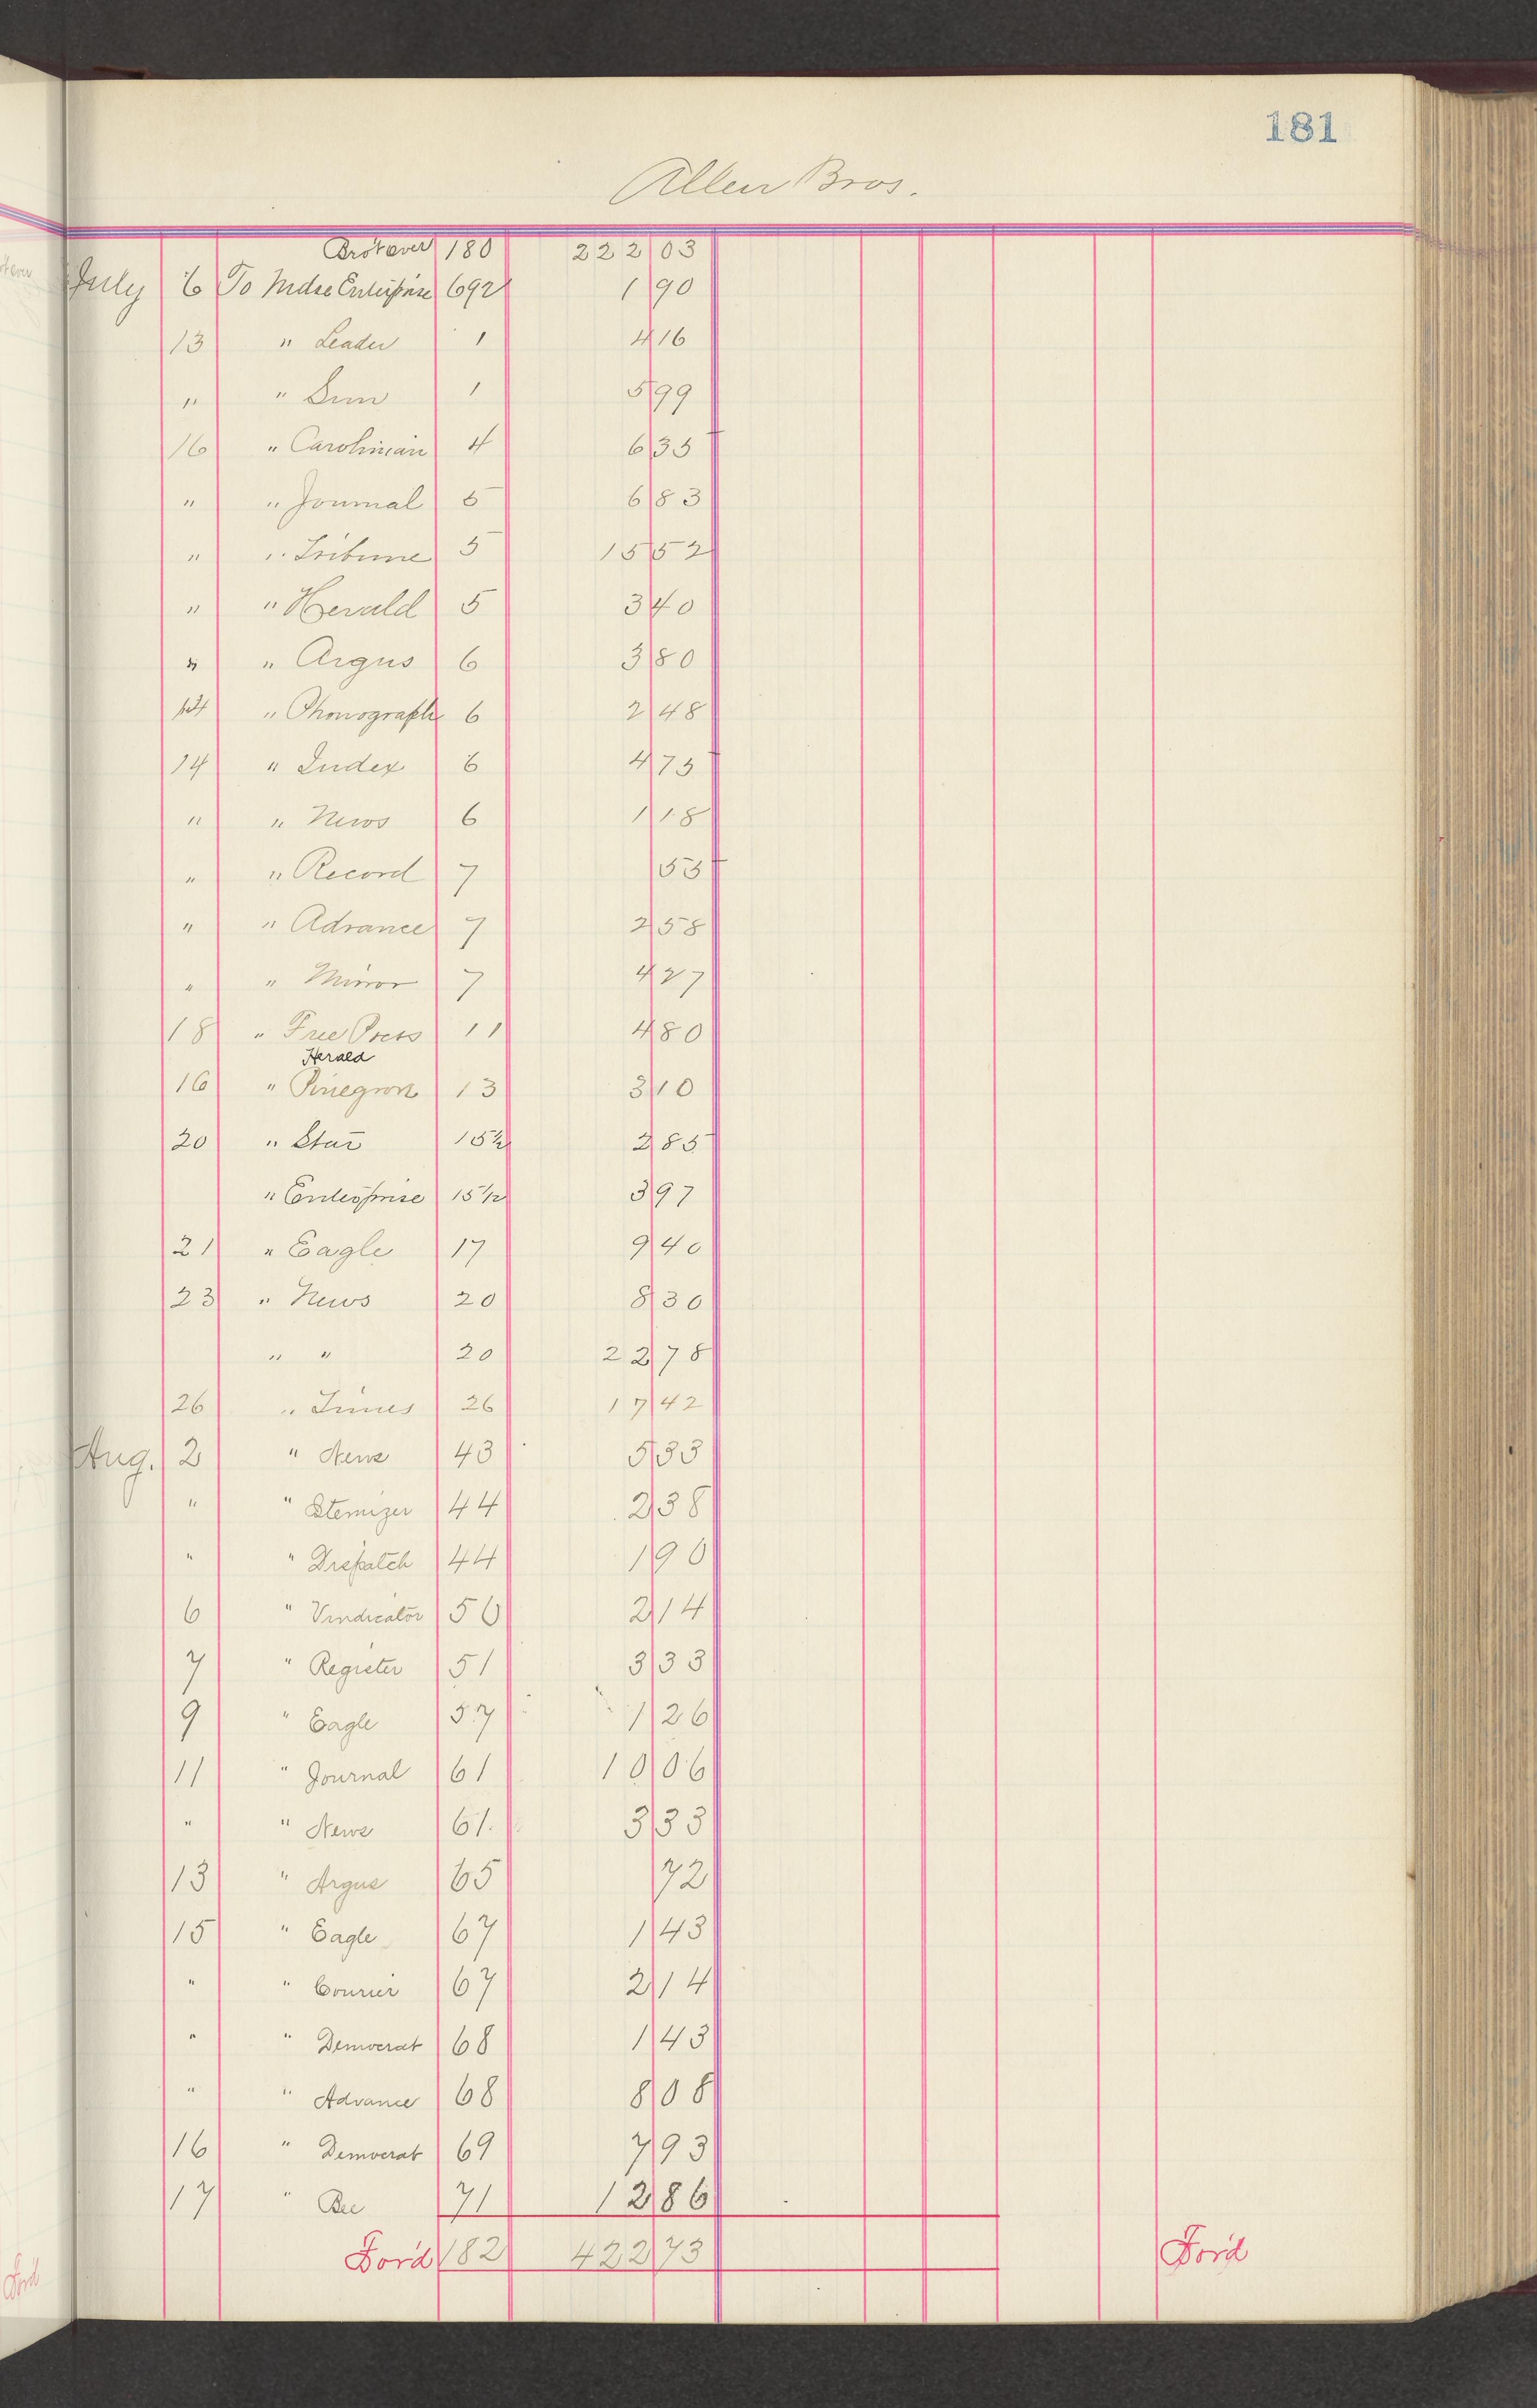 181
Allen Bros.
Brot over 180 222 03
July 6 To Mdse Enterprise 692 1 90
13 " Leader 1 4 16
" " Sun 1 5 99
16 " Carolinian 4 6 35
" " Journal 5 6 83
" " Tribune 5 15 52
" " Herald 5 3 40
" " Argus 6 3 80
" Phonograph 6 2 48
14 " Index 6 4 75
" " News 6 1 18
" " Record 7 55
" " Advance 7 2 58
" " Mirror 7 4 27
18 " Free Press 11 4 80
Herald
16 " 13 3 10
20 " Star 15½ 2 85
" Enterprise 15½ 3 97
21 " Eagle 17 9 40
23 " News 20 8 30
" " 20 22 78
26 " Times 26 17 42
Aug. 2 " News 43 5 33
" " Itemizer 44 2 38
" " Dispatch 44 1 90
6 " Vindicator 50 2 14
7 " Register 51 3 33
9 " Eagle 57 1 26
11 " Journal 61 10 06
" " News 61 3 33
13 " Argus 65 72
15 " Eagle 67 1 43
" " Courier 67 2 14
" " Democrat 68 1 43
" " Advance 68 8 08
16 " Democrat 69 7 93
17 " Bee 71 12 86
For'd 182 422 73 For'd